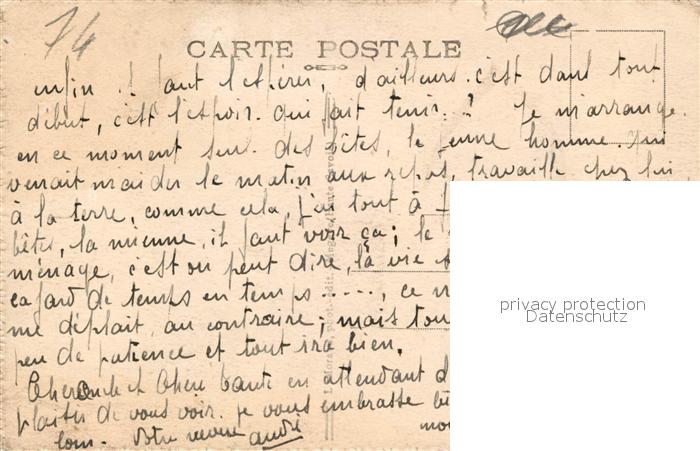 74
CARTE POSTALE
enfin !. faut l'espérer, d'ailleurs. c'est dans tout
début, c'est l'espoir. qui fait tenir. ? Je m'arrange.
en ce moment seul. des bêtes, le jeune homme. qui
venait m'aider le matin aux repas, travaille chez lui
à la terre, comme cela, j'ai tout à
bêtes, la mienne, il faut voir ça ; le
ménage, c'est on peut dire, la vie
cafard de temps en temps....., ce
me déplait, au contraire ; mais tou
peu de patience et tout ira bien.
Cher Oncle et Chère Tante en attendant
plaisir de vous voir. je vous embrasse
tous. Votre neveu andré
privacy protection
Datenschutz